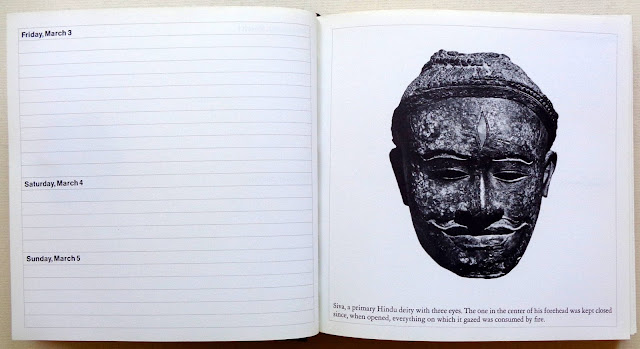 Friday, March 3
Saturday, March 4
Sunday, March 5
Siva, a primary Hindu deity with three eyes. The one in the center of his forehead was kept closed
since, when opened, everything on which it gazed was consumed by fire.